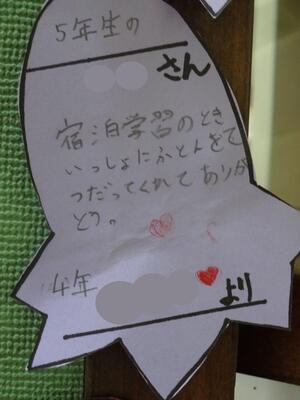 5年生の
さん
宿泊学習のとき
いっしょにふとんをて
つだってくれてありが
とう。
4年
より